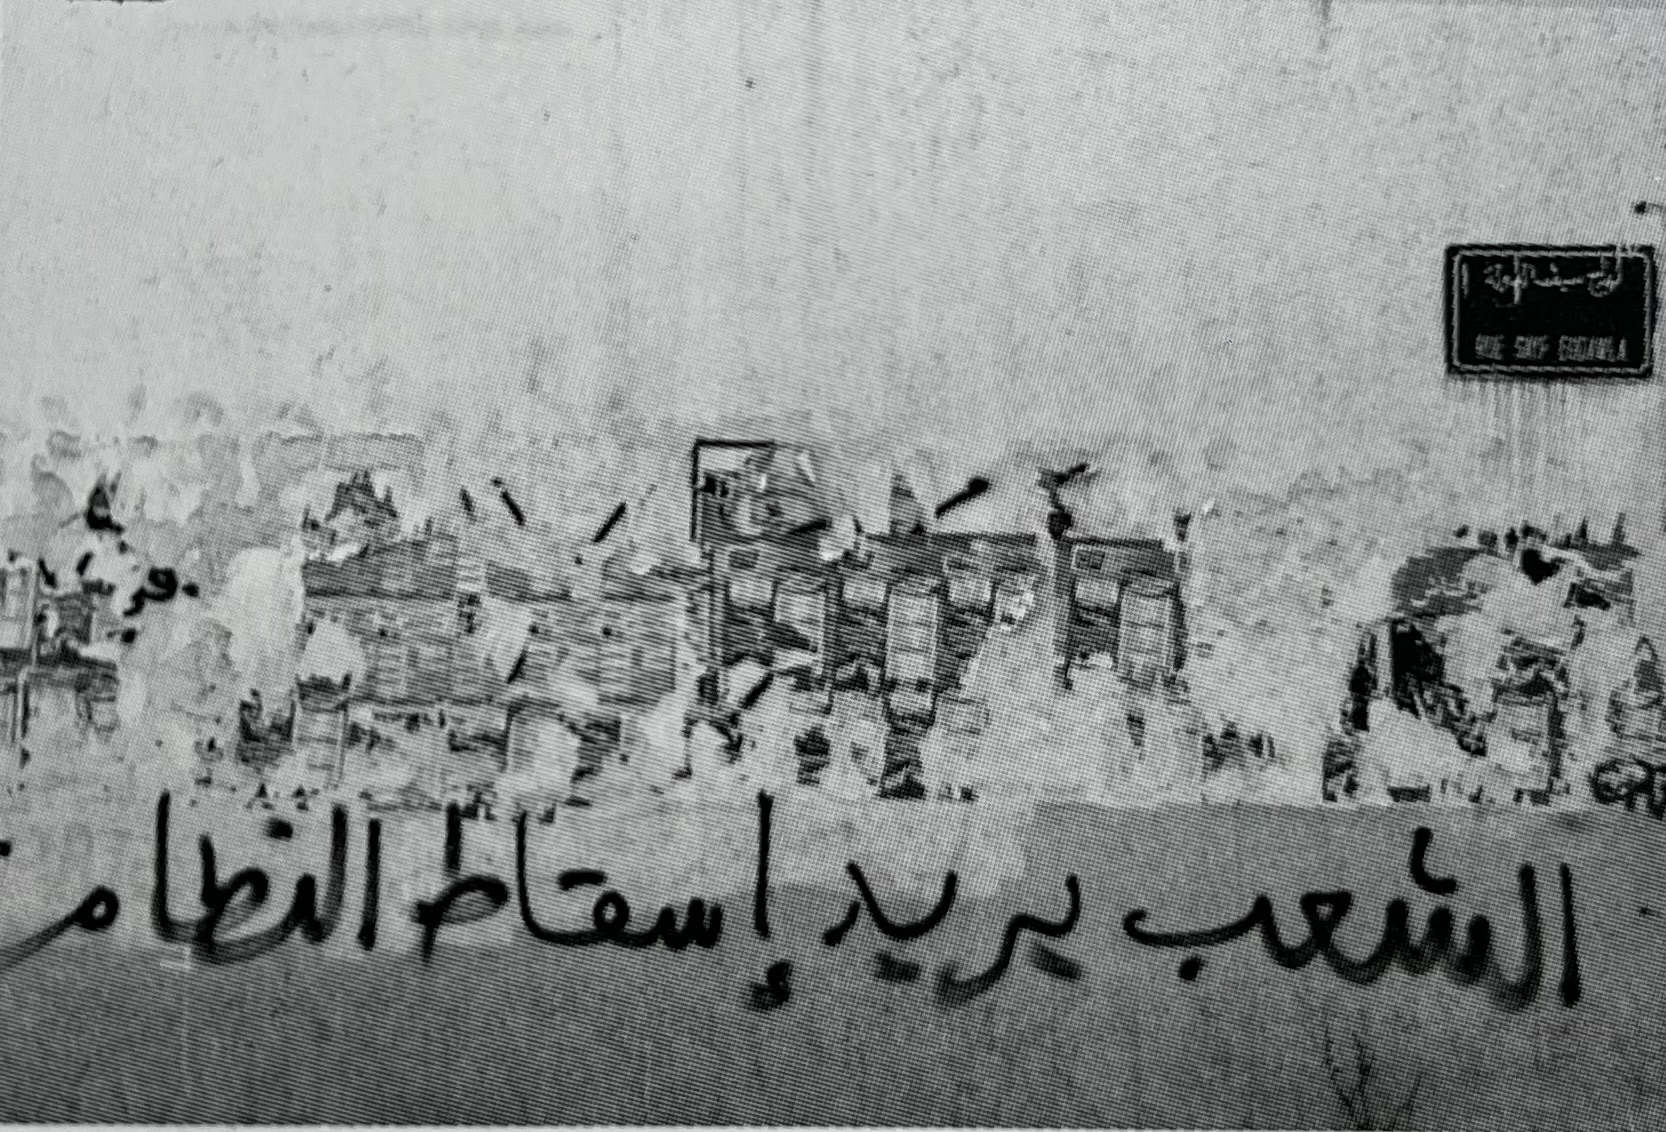 نهج سيف الدولة
RUE SAYF EDDAWLA
الشعب يريد إسقاط النظام